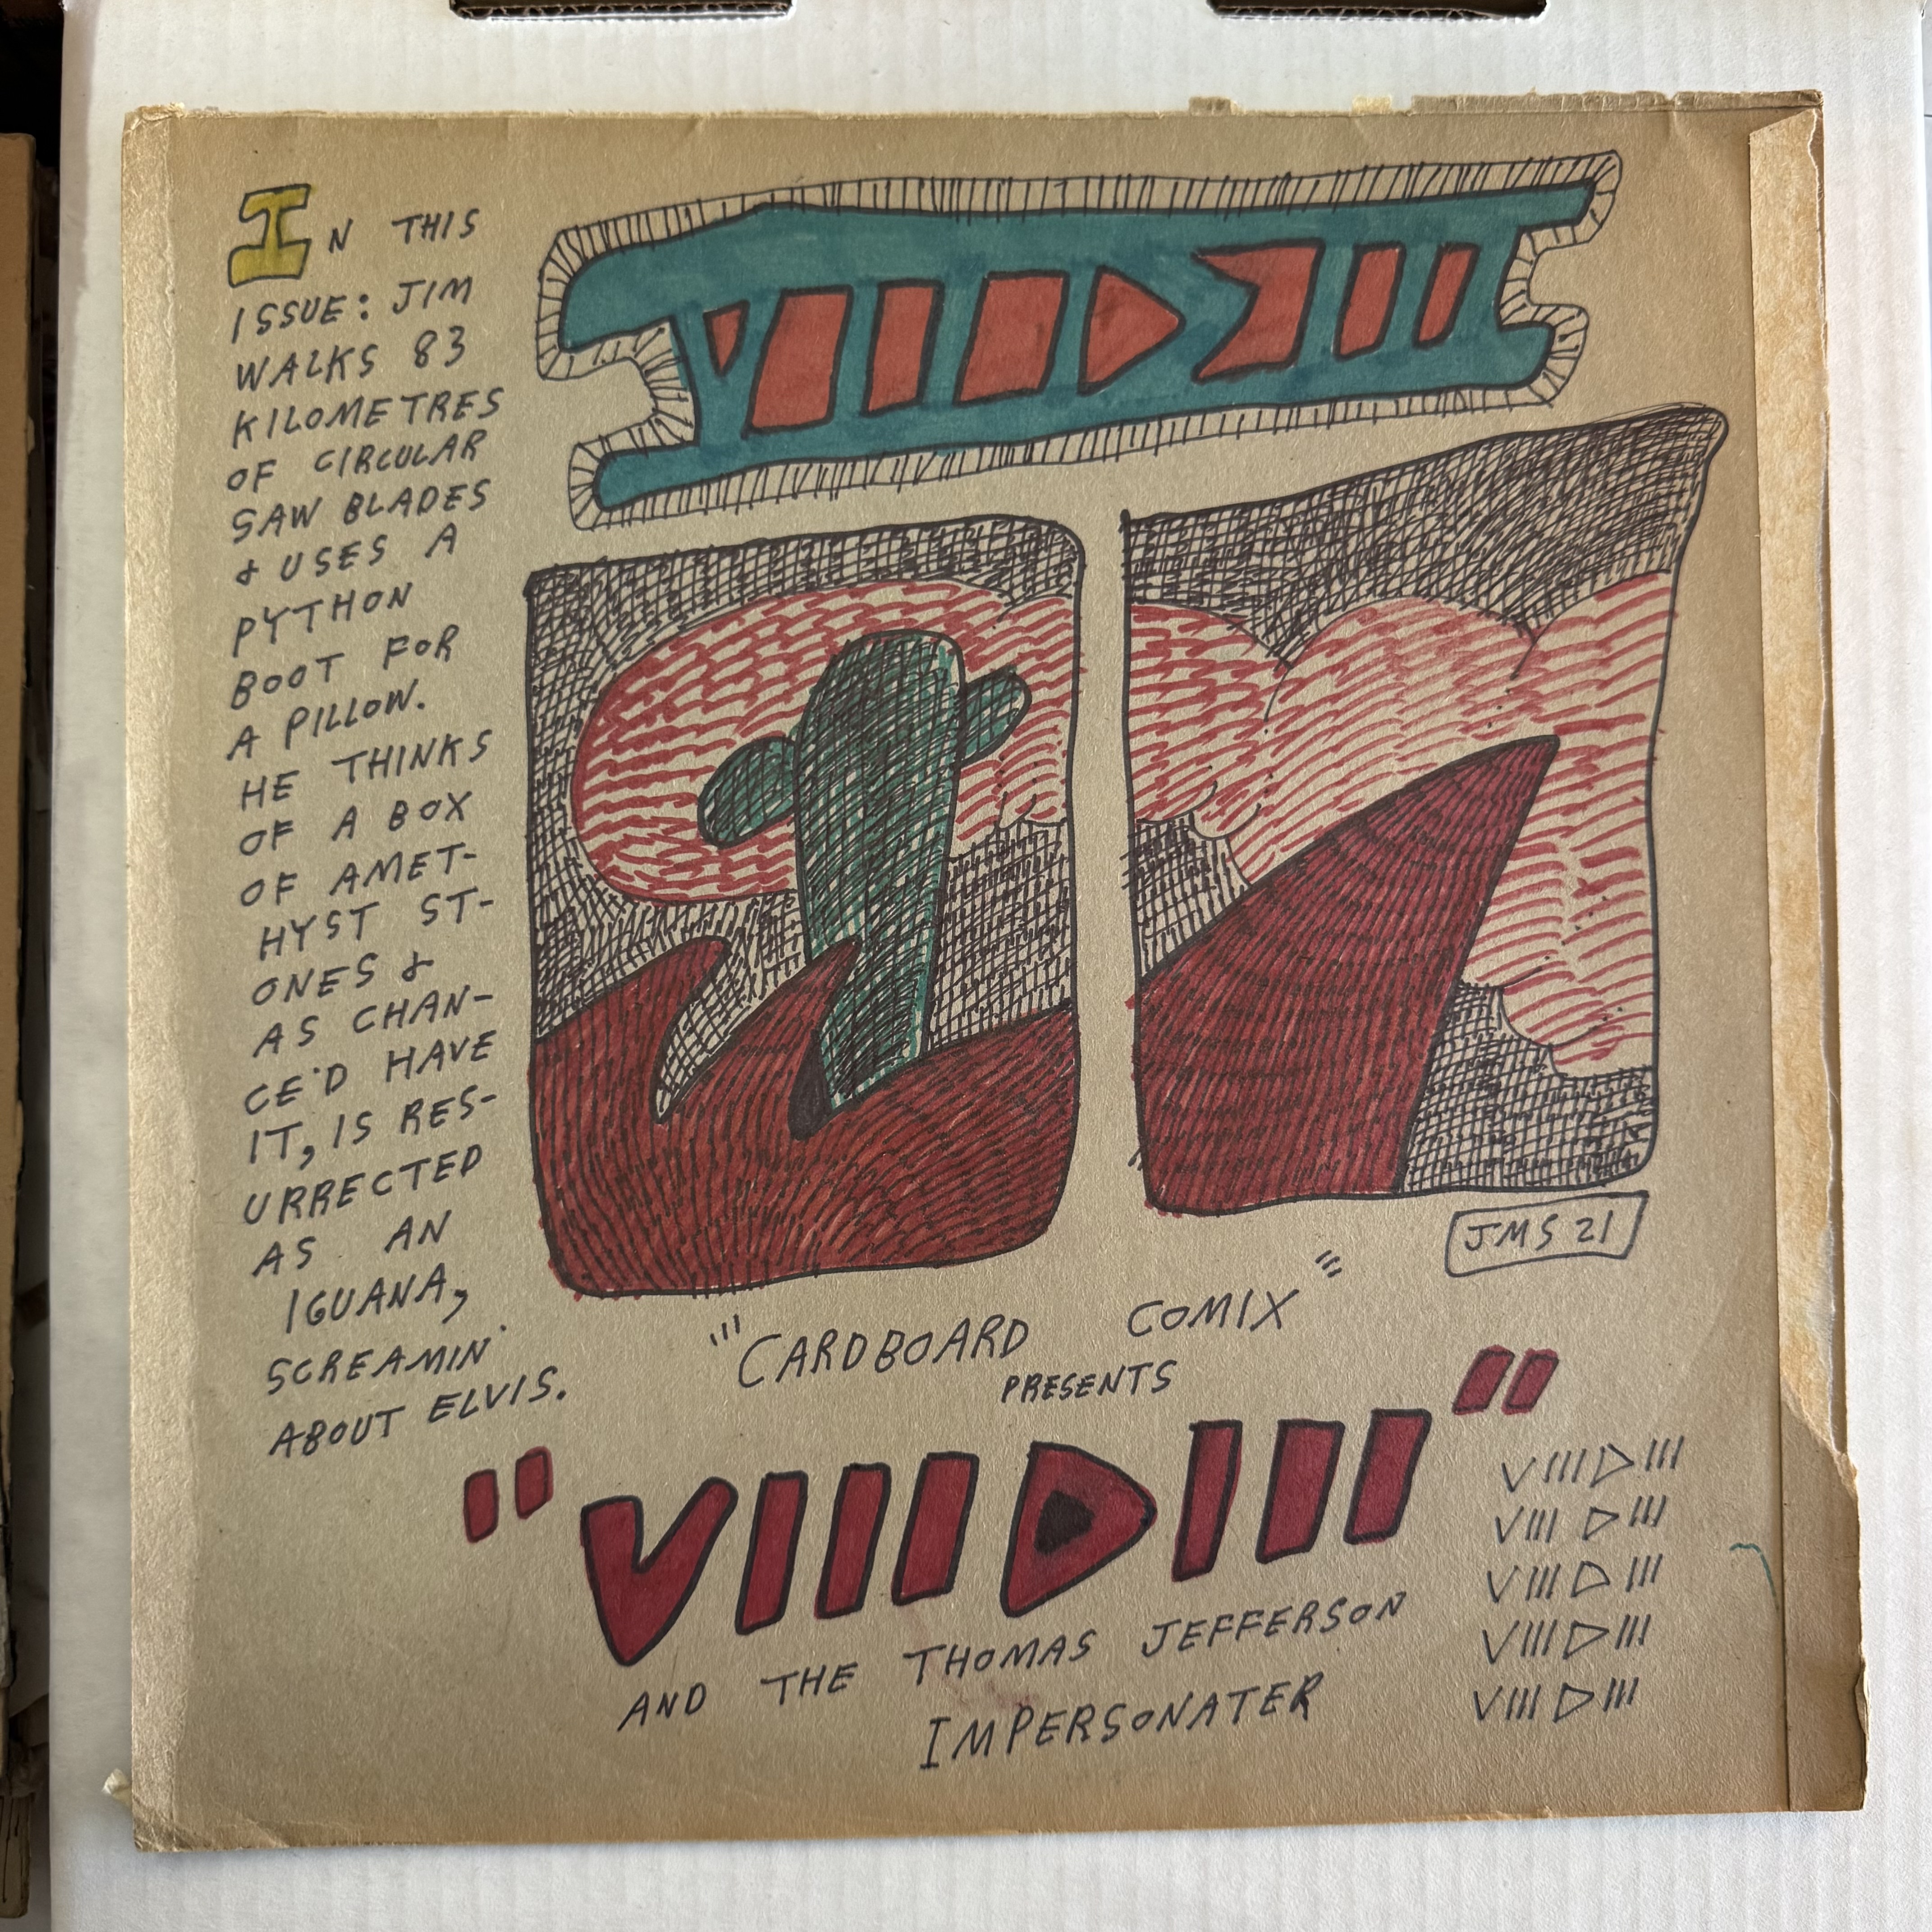 VIIIDIII
IN THIS
ISSUE: JIM
WALKS 83
KILOMETRES
OF CIRCULAR
SAW BLADES
& USES A
PYTHON
BOOT FOR
A PILLOW.
HE THINKS
OF A BOX
OF AMET-
HYST ST-
ONES &
AS CHAN-
CE'D HAVE
IT, IS RES-
URRECTED
AS AN
IGUANA,
SCREAMIN'
ABOUT ELVIS.
JMS 21
"CARDBOARD COMIX"
PRESENTS
"VIIIDIII"
AND THE THOMAS JEFFERSON
IMPERSONATER
VIIIDIII
VIII DIII
VIII D III
VIIIDIII
VIII D III